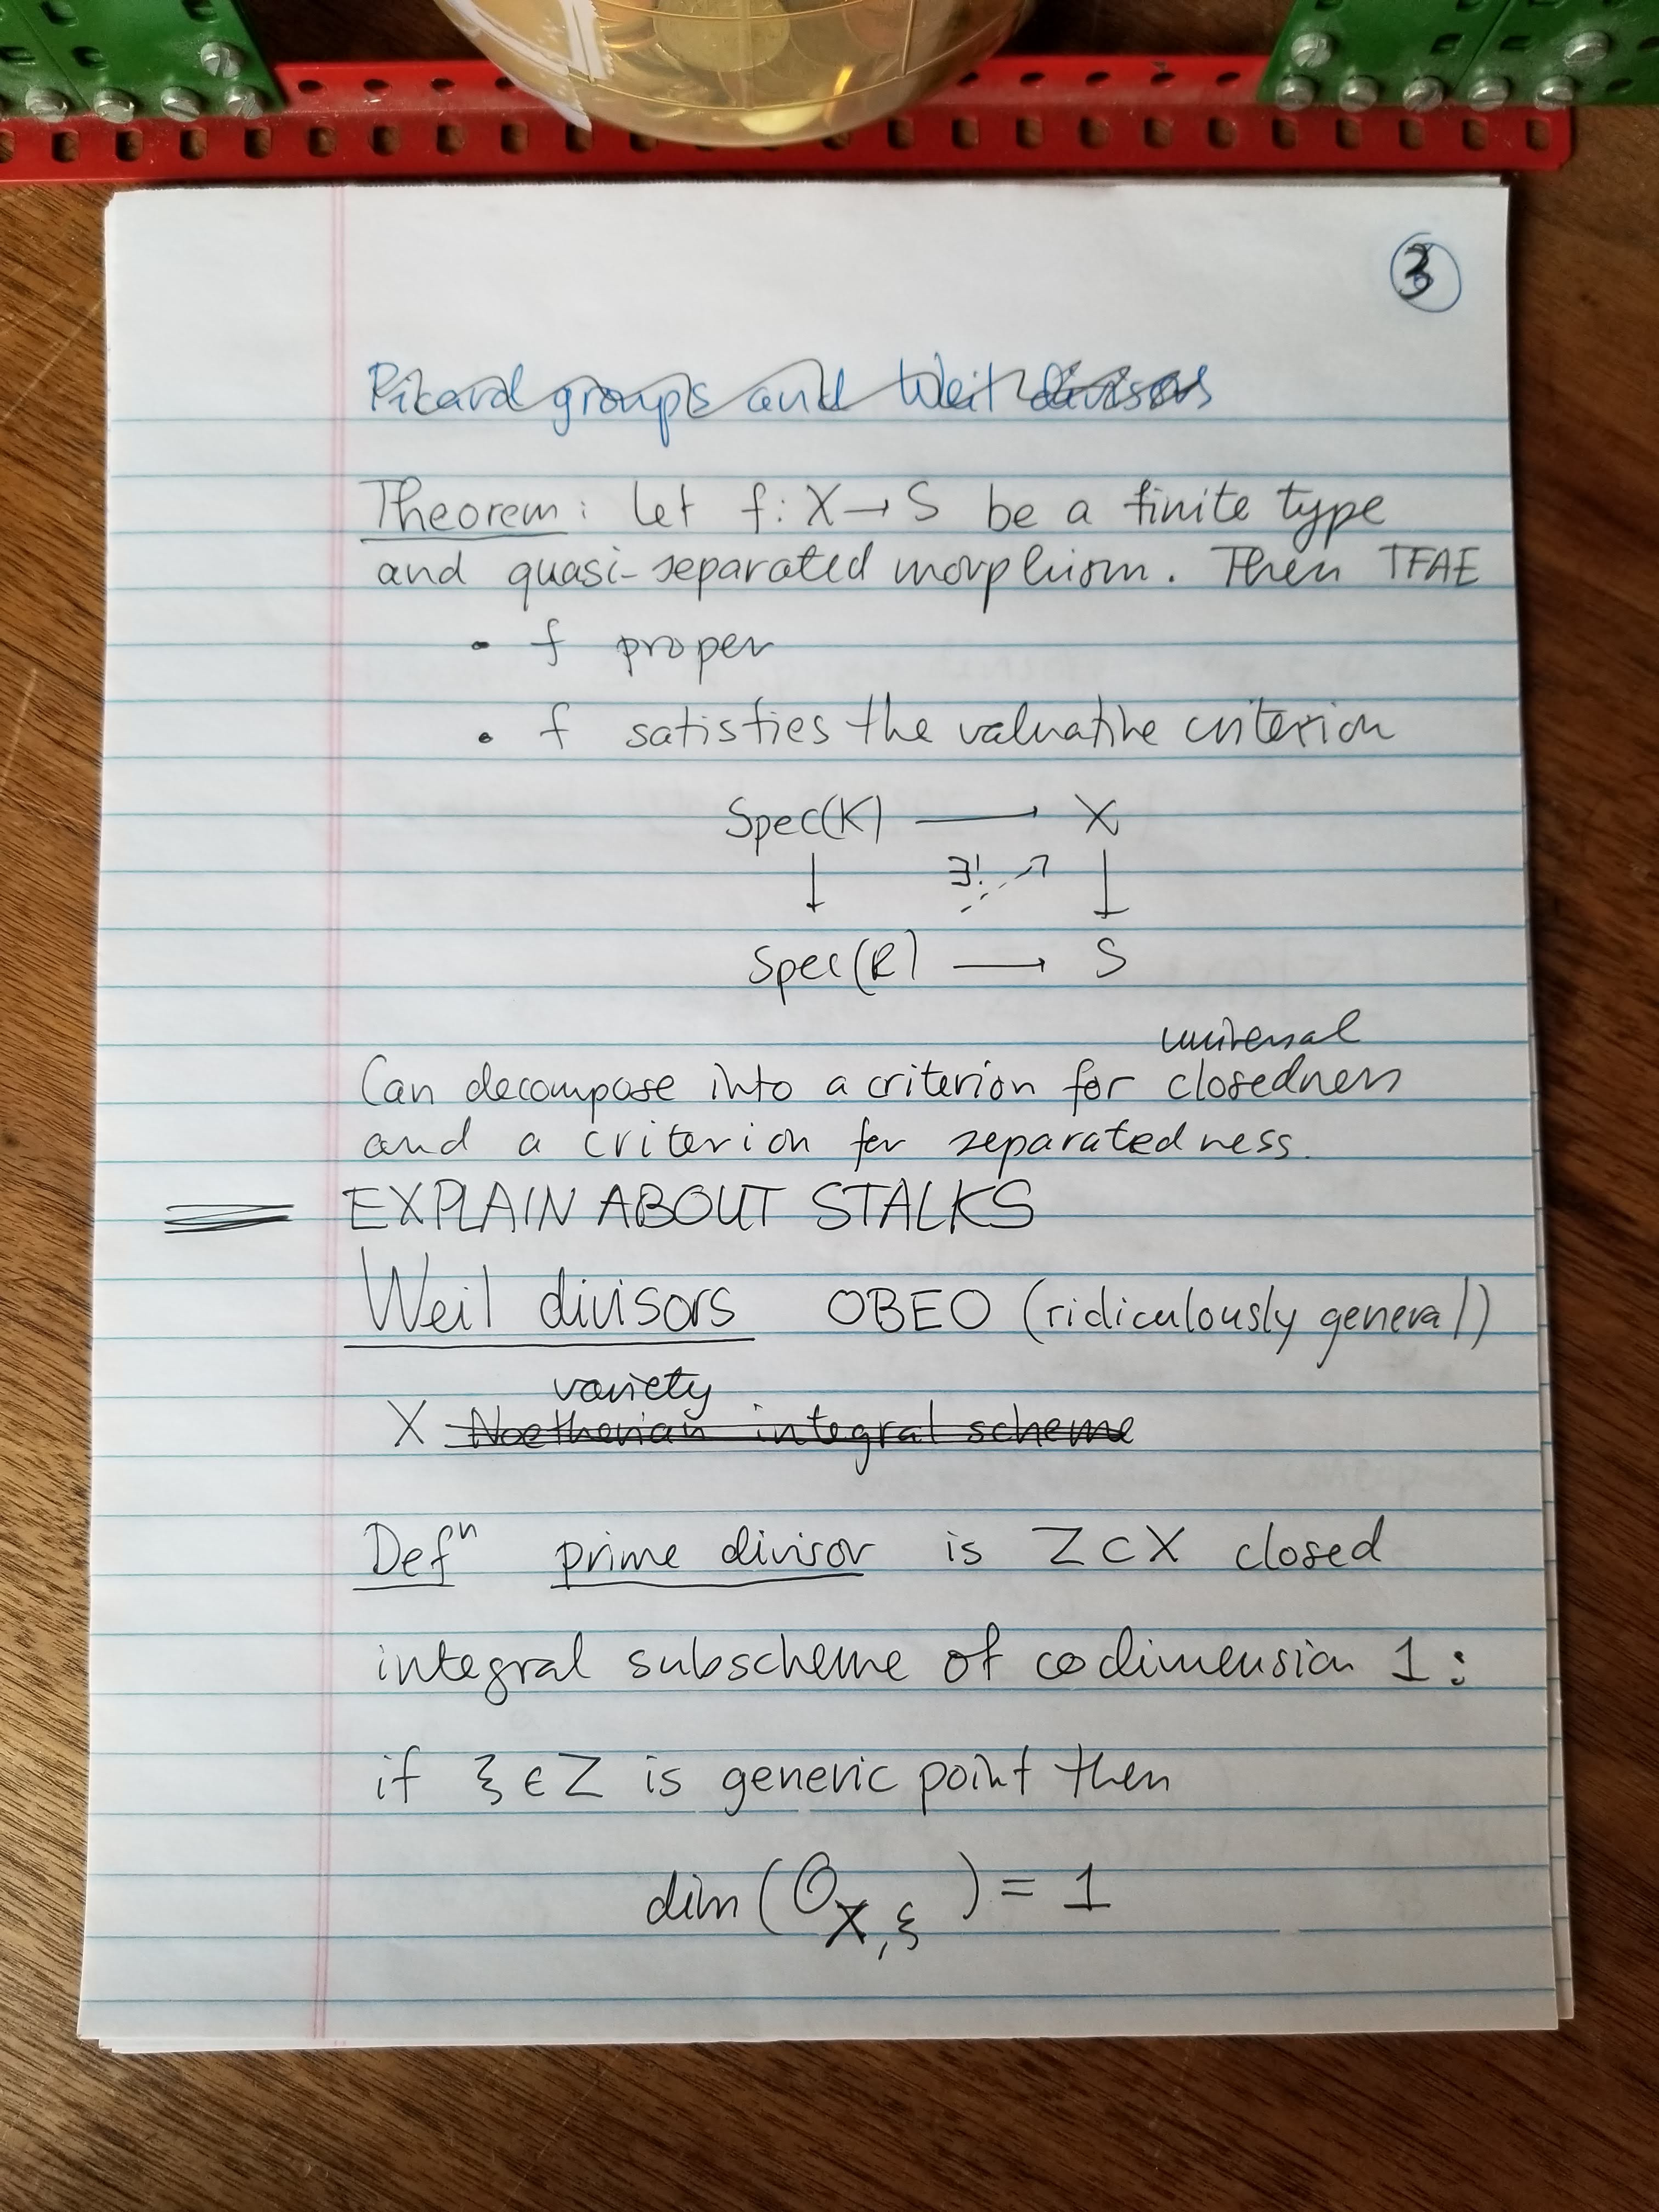 3
Picard groups and Weil divisors
Theorem: Let f: X → S be a finite type
and quasi-separated morphism. Then TFAE
• f proper
• f satisfies the valuative criterion
Spec(K) → X
↓ ∃! ↗ ↓
Spec(R) → S
universal
Can decompose into a criterion for closedness
and a criterion for separatedness.
EXPLAIN ABOUT STALKS
Weil divisors OBEO (ridiculously general)
variety
X Noetherian integral scheme
Defⁿ prime divisor is Z ⊂ X closed
integral subscheme of codimension 1:
if ξ ∈ Z is generic point then
dim(O_{X,ξ}) = 1